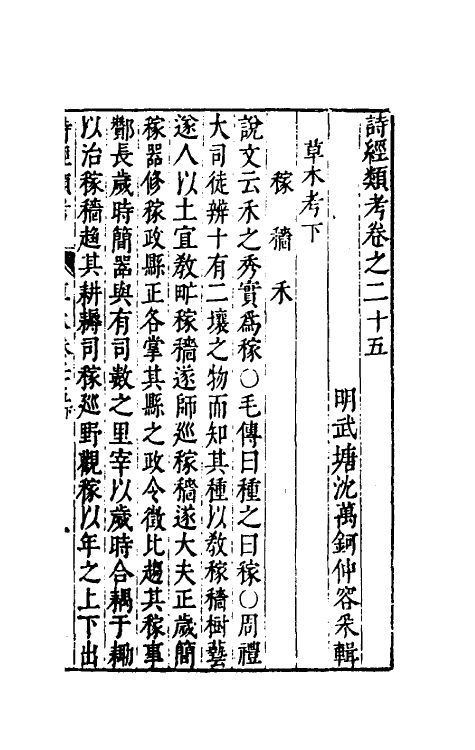 詩經類考卷之二十五
明武塘沈萬鈳仲容釆輯
草木考下
稼穡 禾
說文云禾之秀實爲稼〇毛傳曰種之曰稼〇周禮
大司徒辨十有二壤之物而知其種以敎稼穡樹藝
遂人以土宜敎甿稼穡遂師巡稼穡遂大夫正歲簡
稼器修稼政縣正各掌其縣之政令徵比趨其稼事
酇長歲時簡器與有司數之里宰以歲時合耦于耡
以治稼穡趨其耕耨司稼廵野觀稼以年之上下出